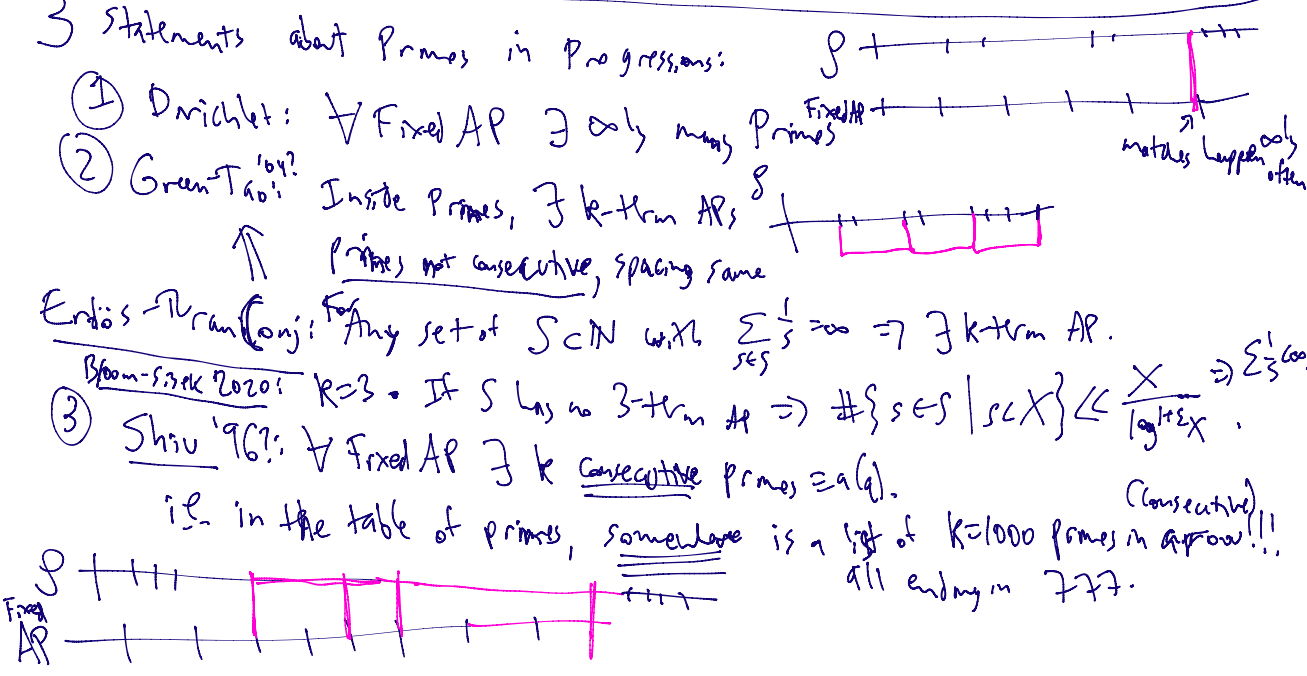 3 Statements about Primes in Progressions:
① Dirichlet: ∀ Fixed AP ∃ ∞ly many Primes
P
Fixed AP
matches happen ∞ly often
② Green-Tao '04?: Inside Primes, ∃ k-term APs
P
Primes not consecutive, spacing same
Erdös-Turan Conj: For Any set of S⊂ℕ with ∑_{s∈S} 1/s = ∞ ⇒ ∃ k-term AP.
Bloom-Sisek 2020: k=3. If S has no 3-term AP ⇒ #{s∈S | s<X} ≪ X/log^{1+ε}X. ⇒ ∑ 1/s < ∞
③ Shiu '96?: ∀ Fixed AP ∃ k consecutive primes ≡ a(q).
i.e. in the table of primes, somewhere is a list of k=1000 primes in a row!!!
(Consecutive)
all ending in 777.
P
Fixed
AP